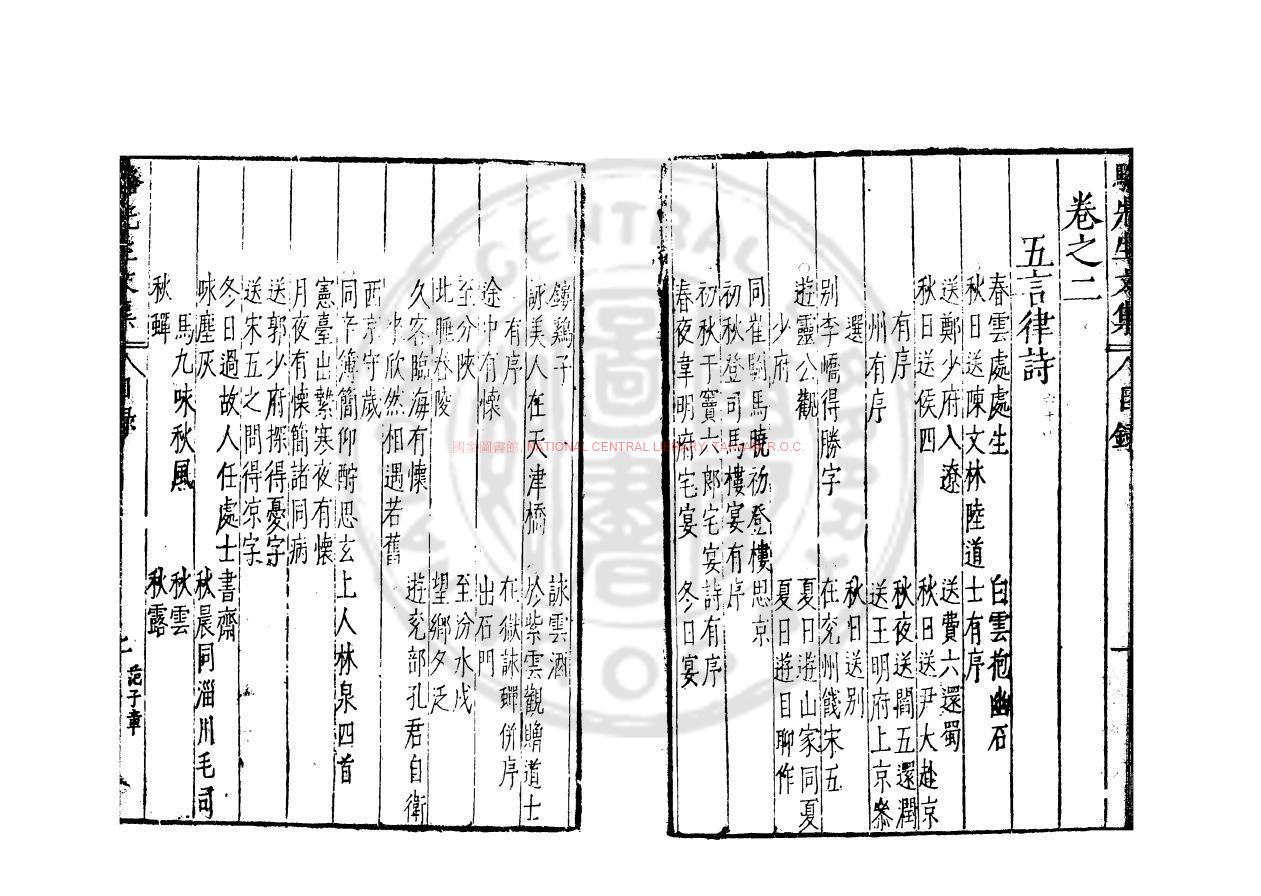 卷之二
五言律詩
春雲處處生
白雲抱幽石
秋日送陳文林陸道士有序
送鄭少府入遼
送費六還蜀
秋日送侯四
秋日送尹大赴京
有序
秋夜送閻五還潤
州有序
送王明府上京叅
選
秋日送別
別李嶠得勝字
在兗州餞宋五
遊靈公觀
夏日遊山家同夏
少府
夏日遊目聊作
同崔駙馬曉初登樓思京
初秋登司馬樓宴有序
初秋于竇六郎宅宴詩有序
春夜韋明府宅宴
冬日宴
鏤鷄子
詠雲酒
詠美人在天津橋
於紫雲觀贈道士
有序
在獄詠蟬併序
途中有懷
出石門
至分陜
至汾水戍
此睡春陵
望鄉夕泛
久客臨海有懷
遊兗部孔君自衛
來欣然相遇若舊
西京守歲
同辛簿簡仰酧思玄上人林泉四首
憲臺出縶寒夜有懷
月夜有懷簡諸同病
送郭少府探得憂字
送宋五之問得凉字
冬日過故人任處士書齋
咏塵灰
秋晨同淄川毛司
馬九咏秋風
秋雲
秋蟬
秋露
范子章
國家圖書館, NATIONAL CENTRAL LIBRARY, TAIWAN, R.O.C.